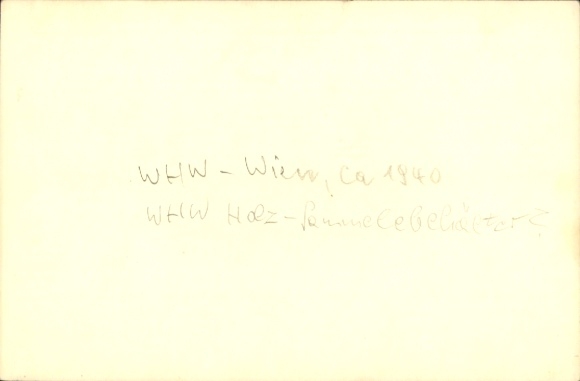 WHW - Wien, ca 1940
WHW Holz-Sammelbehälter?